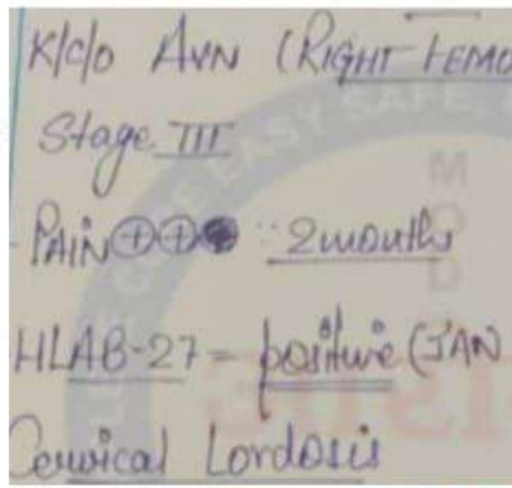 K/c/o AVN (RIGHT FEMO
Stage III
- PAIN ⊕⊕ :: 2 months
HLAB-27 - positive (JAN
Cervical Lordosis
EASY SAFE